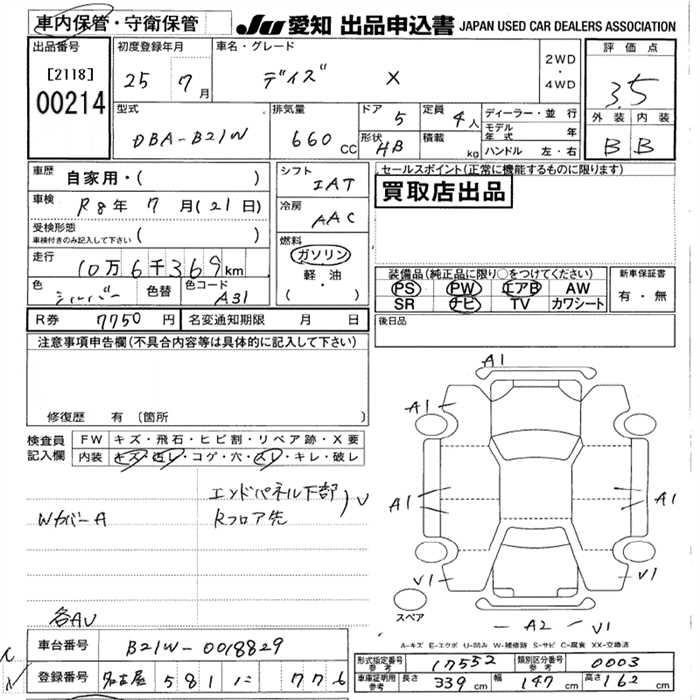 車内保管・守衛保管
JU 愛知 出品申込書 JAPAN USED CAR DEALERS ASSOCIATION
出品番号
[2118]
00214
初度登録年月
25 7月
車名・グレード
デイズ X
2WD
・
4WD
評価点
3.5
外装 内装
B B
型式
DBA-B21W
排気量
660 CC
ドア 5
形状 HB
定員 4人
積載 kg
ディーラー・並行
モデル年式 年
ハンドル 左・右
車歴 自家用・( )
車検 R8年 7月(21日)
受検形態
車検付きのみ記入して下さい ( )
走行 10万6千369km
色 シルバー 色替 色コード A31
シフト
IAT
冷房
AAC
燃料
ガソリン
軽・油
( ・ )
セールスポイント(正常に機能するものに限ります)
買取店出品
装備品(純正品に限り○をつけてください)
PS PW エアB AW
SR ナビ TV カワシート
新車保証書
有・無
R券 7750円 名変通知期限 月 日
後日品
注意事項申告欄(不具合内容等は具体的に記入して下さい)
修復歴 有(箇所 )
検査員記入欄
FW キズ・飛石・ヒビ割・リペア跡・X要
内装 キズ・汚レ・コゲ・穴・スレ・キレ・破レ
エンドパネル下部
Rフロア先 )V
Wカバー A
各AV
A1
A1
A1
A1
V1
V1
スペア
A2 V1
A-キズ E-エクボ U-凹み W-補修跡 S-サビ C-腐食 XX-交換済
車台番号 B21W-0018829
登録番号 名古屋 581 に 776
形式指定番号 参考 17552 類別区分番号 参考 0003
車庫証明用 参考 長さ 339cm 幅 147cm 高さ 162cm